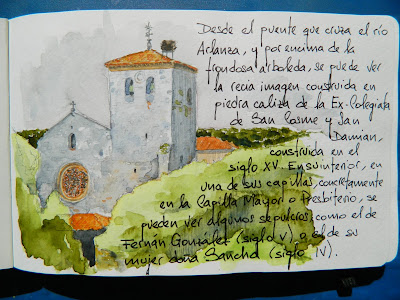 Desde el puente que cruza el río
Arlanza, y por encima de la
frondosa arboleda, se puede ver
la recia imagen construida en
piedra caliza de la Ex-Colegiata
de San Cosme y San
Damian,
construida en el
siglo XV. En su interior, en
una de sus capillas, concretamente
en la Capilla Mayor o Presbiterio, se
pueden ver algunos sepulcros, como el de
Fernán González (siglo V) o el de su
mujer doña Sancha (siglo IV).